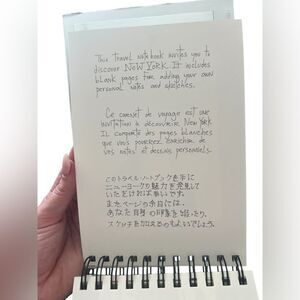 This travel notebook invites you to
discover NEW YORK. It includes
blank pages for adding your own
personal notes and sketches.
Ce carnet de voyage est une
invitation à découvrir NEW YORK.
Il comporte des pages blanches
que vous pourrez enrichir de
vos notes et dessins personnels.
このトラベル・ノートブックを手に
ニューヨークの魅力を発見して
いただければ幸いです。
またページの余白には、
あなた自身の印象を綴ったり、
スケッチを加えるのもよいでしょう。